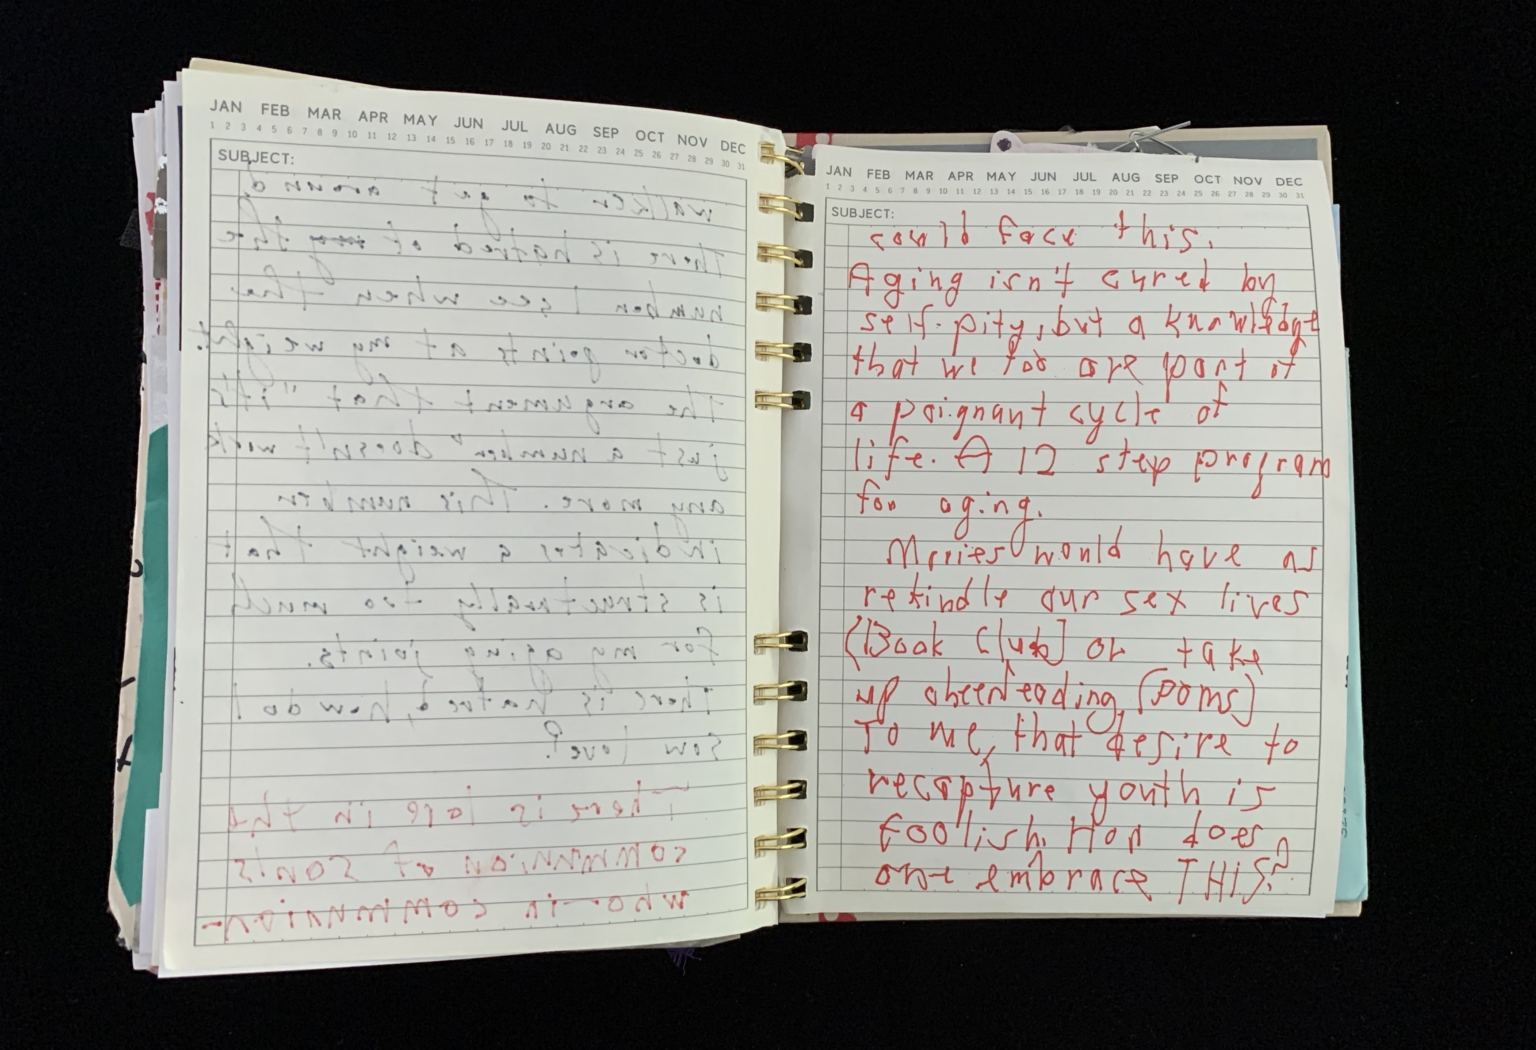 JAN FEB MAR APR MAY JUN JUL AUG SEP OCT NOV DEC
1 2 3 4 5 6 7 8 9 10 11 12 13 14 15 16 17 18 19 20 21 22 23 24 25 26 27 28 29 30 31
SUBJECT:
walker to get around.
There is hatred of the
number I see when the
doctor points at my weight.
The argument that "it's
just a number" doesn't work
any more. This number
indicates a weight that
is structurally too much
for my aging joints.
There is hatred, how do I
sow love?
There is love in the
communion of saints
who in communion-
JAN FEB MAR APR MAY JUN JUL AUG SEP OCT NOV DEC
1 2 3 4 5 6 7 8 9 10 11 12 13 14 15 16 17 18 19 20 21 22 23 24 25 26 27 28 29 30 31
SUBJECT:
could face this.
Aging isn't cured by
self-pity, but a knowledge
that we too are part of
a poignant cycle of
life. A 12 step program
for aging.
Movies would have us
rekindle our sex lives
(Book Club) or take
up cheerleading (Poms)
To me, that desire to
recapture youth is
foolish. How does
one embrace THIS?